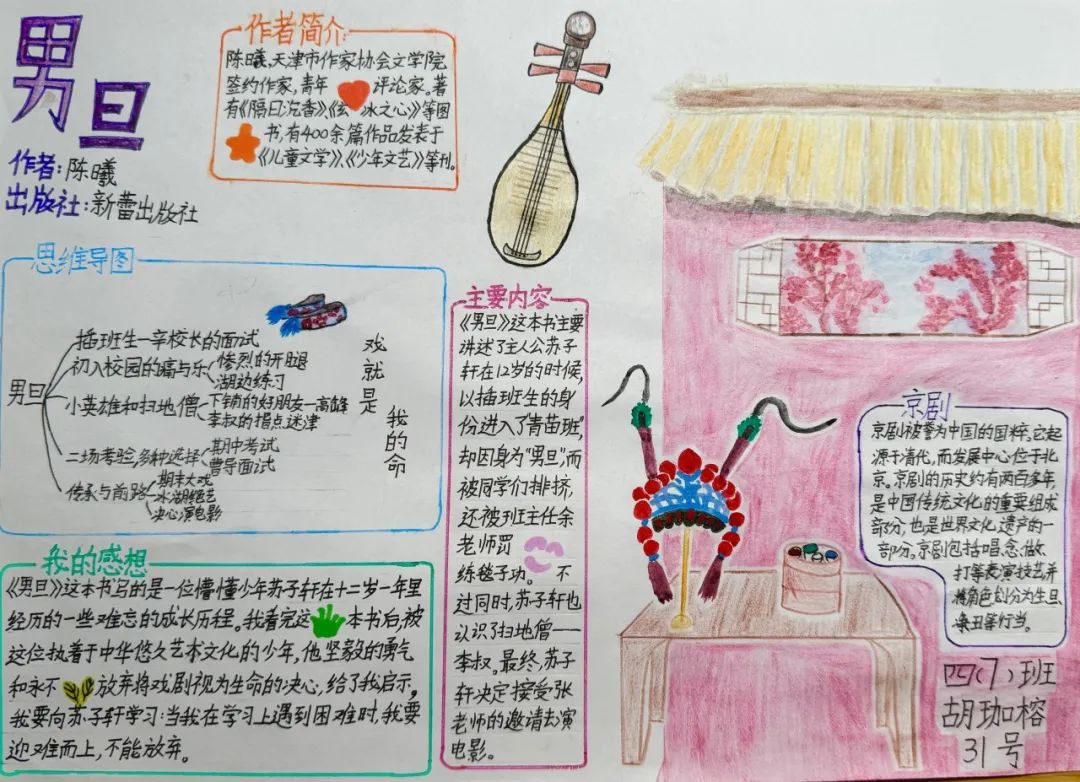 男旦
作者:陈曦
出版社:新蕾出版社
作者简介
陈曦,天津市作家协会文学院
签约作家,青年 评论家。著
有《隔曰沉香》、《玄 冰之心》等图
书,有400余篇作品发表于
《儿童文学》、《少年文艺》等刊。
思维导图
男旦
插班生—辛校长的面试
初入校园的痛与乐
惨烈的开腿
湖边练习
小英雄和扫地僧
下铺的好朋友—高峰
李叔的指点迷津
二场考验,多种选择
期中考试
曹导面试
传承与前路
期末大戏
冰湖绝艺
决心演电影
戏就是
我的命
主要内容
《男旦》这本书主要
讲述了主人公苏子
轩在12岁的时候,
以插班生的身
份进入了“青苗班”,
却因身为“男旦”,而
被同学们排挤,
还被班主任余
老师罚
练毯子功。 不
过同时,苏子轩也
认识了扫地僧——
李叔。最终,苏子
轩决定接受张
老师的邀请去演
电影。
我的感想
《男旦》这本书写的是一位懵懂少年苏子轩在十二岁一年里
经历的一些难忘的成长历程。我看完这 本书后,被
这位执着于中华悠久艺术文化的少年,他坚毅的勇气
和永不 放弃将戏剧视为生命的决心,给了我启示,
我要向苏子轩学习:当我在学习上遇到困难时,我要
迎难而上,不能放弃。
京剧
京剧被誉为中国的国粹。它起
源于清代,而发展中心位于北
京。京剧的历史约有两百多年,
是中国传统文化的重要组成
部分,也是世界文化遗产的一
部份。京剧包括唱、念、做、
打等表演技艺,并
将角色划分为生、旦、
净、丑等行当。
四(7)班
胡珈榕
31号